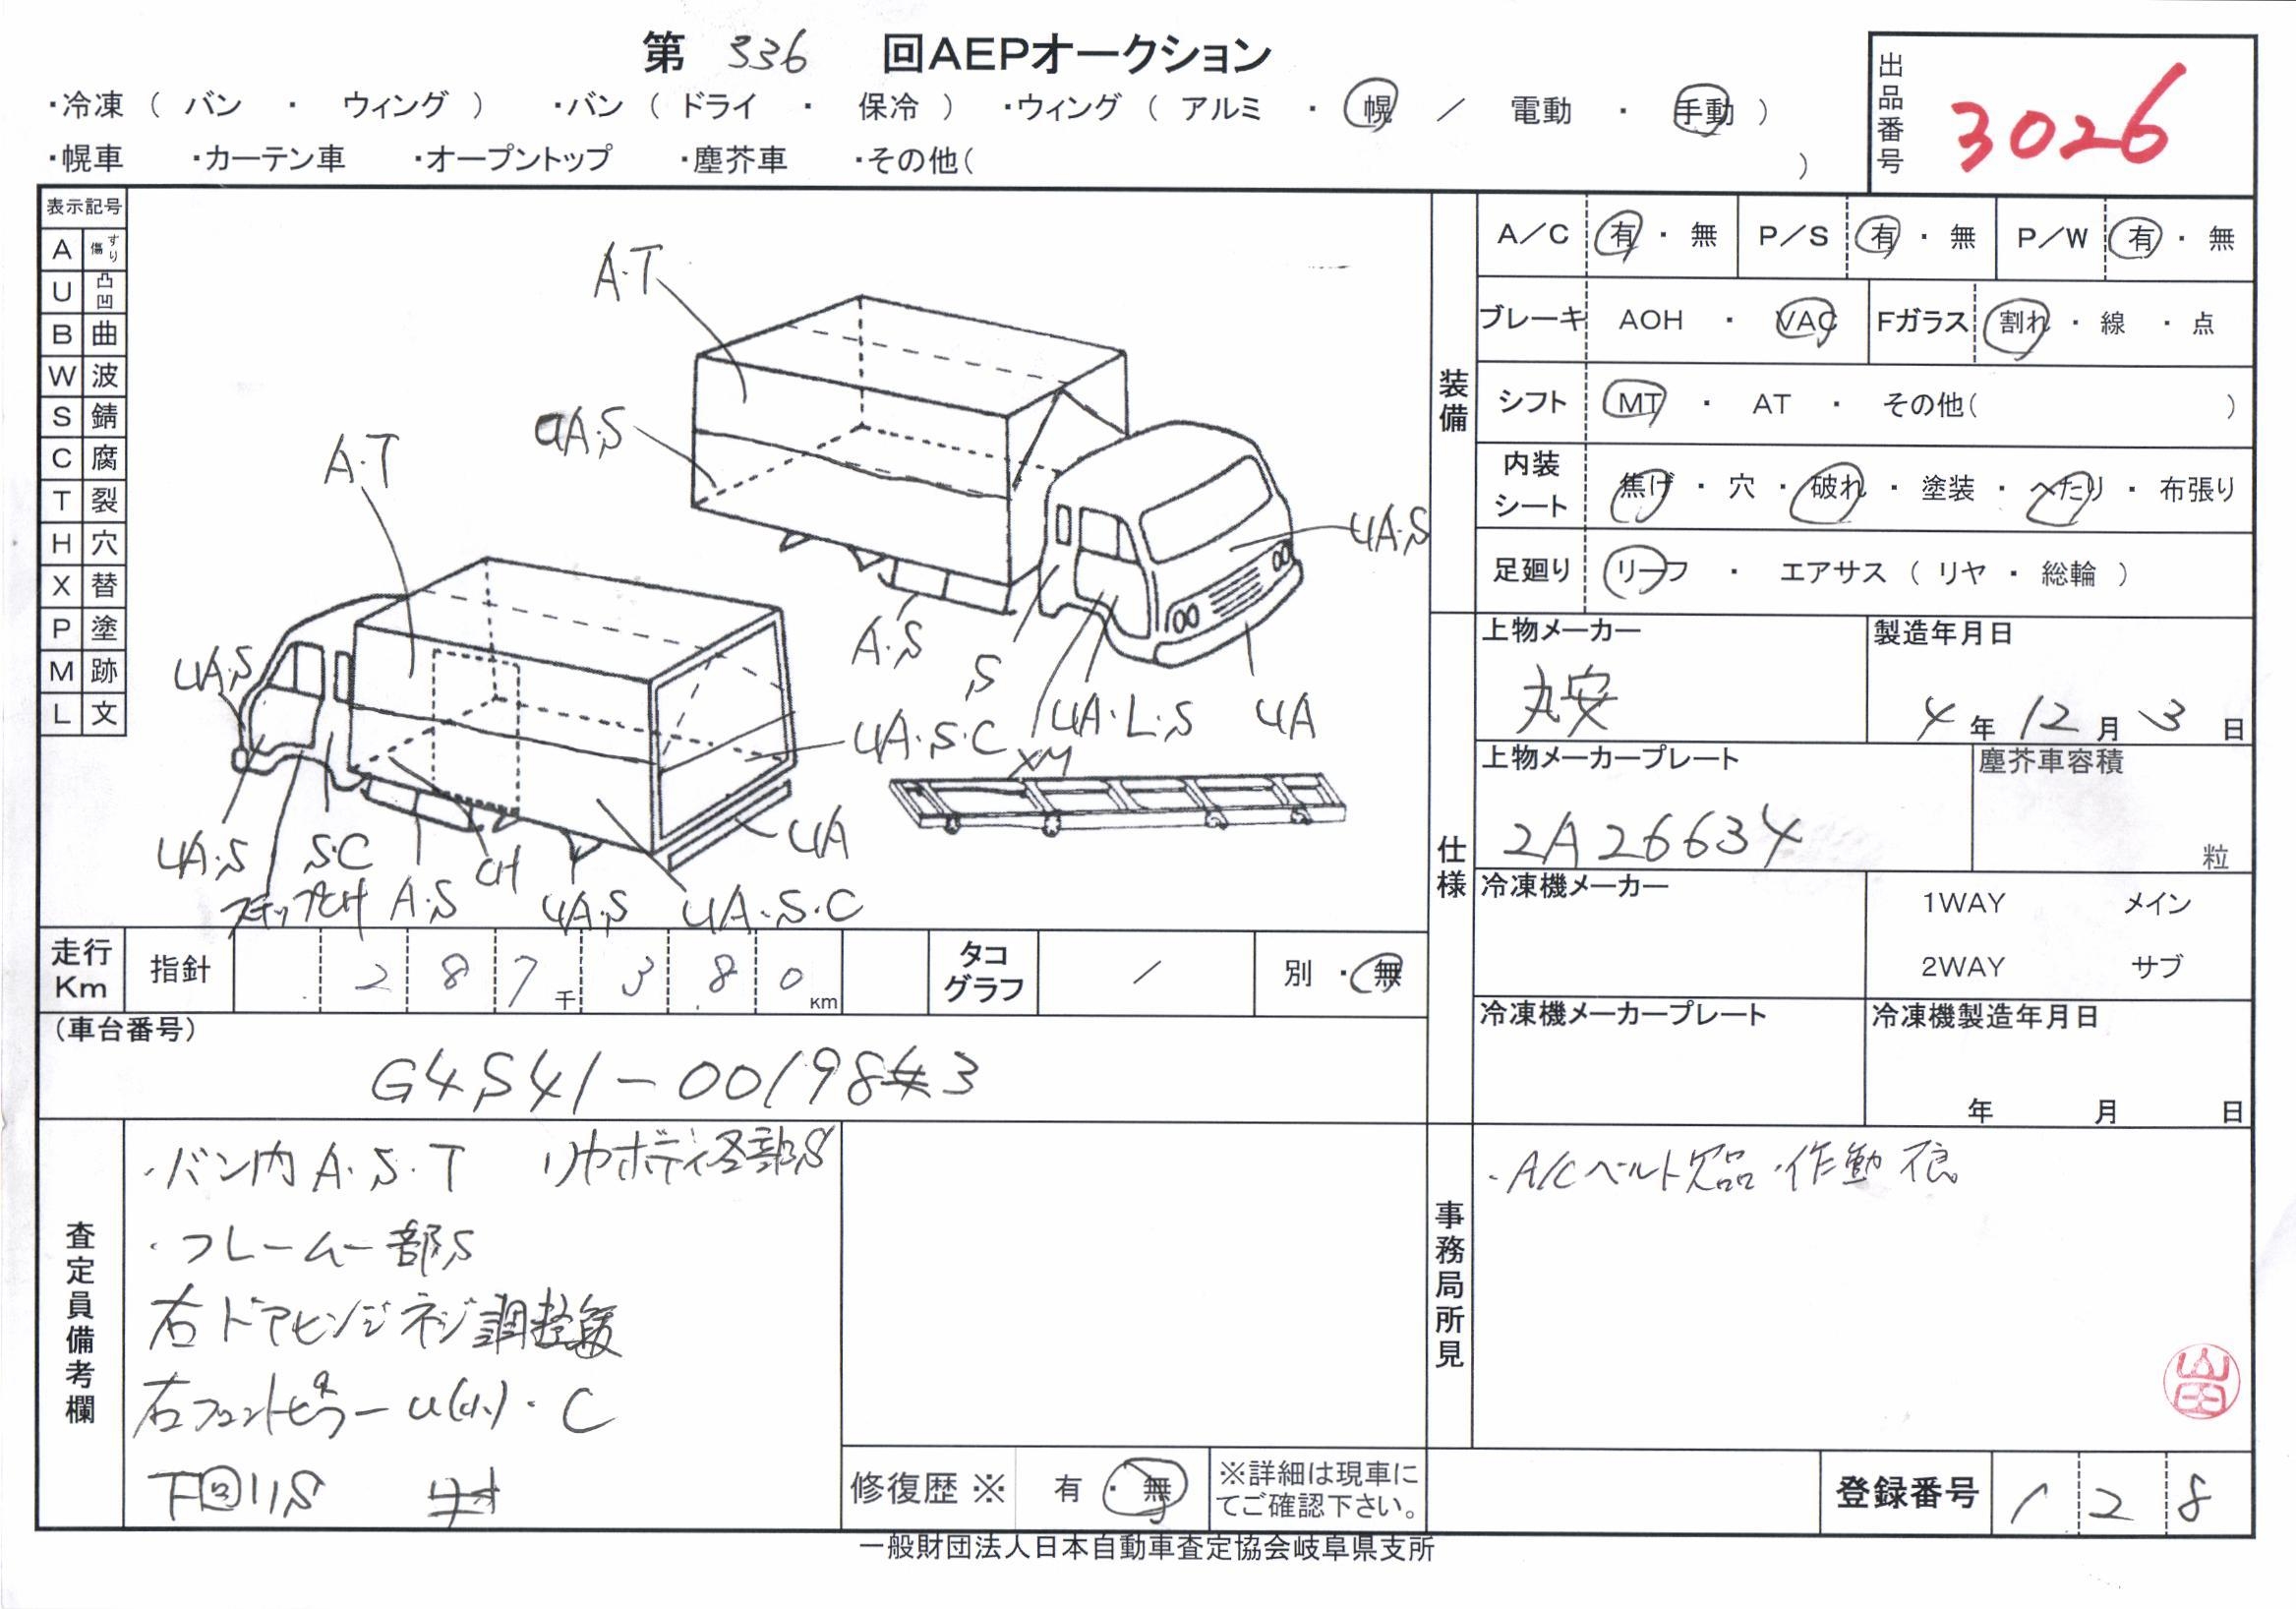 第 336 回AEPオークション
・冷凍 ( バン ・ ウィング ) ・バン ( ドライ ・ 保冷 ) ・ウィング ( アルミ ・ 幌 / 電動 ・ 手動 )
・幌車 ・カーテン車 ・オープントップ ・塵芥車 ・その他( )
出品番号 3026
表示記号
A すり傷
U 凸凹
B 曲
W 波
S 錆
C 腐
T 裂
H 穴
X 替
P 塗
M 跡
L 文
A・T
A・S
A・T
UA・S
A・S
S
UA・L・S
UA
UA・S
UA・S・C
XM
UA・S
S・C
CH
UA
ステップCH
A・S
UA・S
UA・S・C
装備
A/C 有 ・ 無 P/S 有 ・ 無 P/W 有 ・ 無
ブレーキ AOH ・ VAC Fガラス 割れ ・ 線 ・ 点
シフト MT ・ AT ・ その他( )
内装シート 焦げ ・ 穴 ・ 破れ ・ 塗装 ・ へたり ・ 布張り
足廻り リーフ ・ エアサス ( リヤ ・ 総輪 )
仕様
上物メーカー 丸安
製造年月日 4 年 12 月 3 日
上物メーカープレート 2A26634
塵芥車容積 粒
冷凍機メーカー
1WAY メイン
2WAY サブ
冷凍機メーカープレート
冷凍機製造年月日 年 月 日
走行Km 指針 2 8 7 千 3 8 0 Km タコグラフ / 別 ・ 無
(車台番号)
G4S41-00198 3
査定員備考欄
・バン内 A.S.T リヤボディ各部S
・フレーム一部S
右ドアヒンジネジ調整
右フロントピラー U(小)・C
下回りS
修復歴 ※ 有 ・ 無 ※詳細は現車にてご確認下さい。
事務局所見
・A/Cベルト欠品・作動不良
登録番号 1 2 8
一般財団法人日本自動車査定協会岐阜県支所